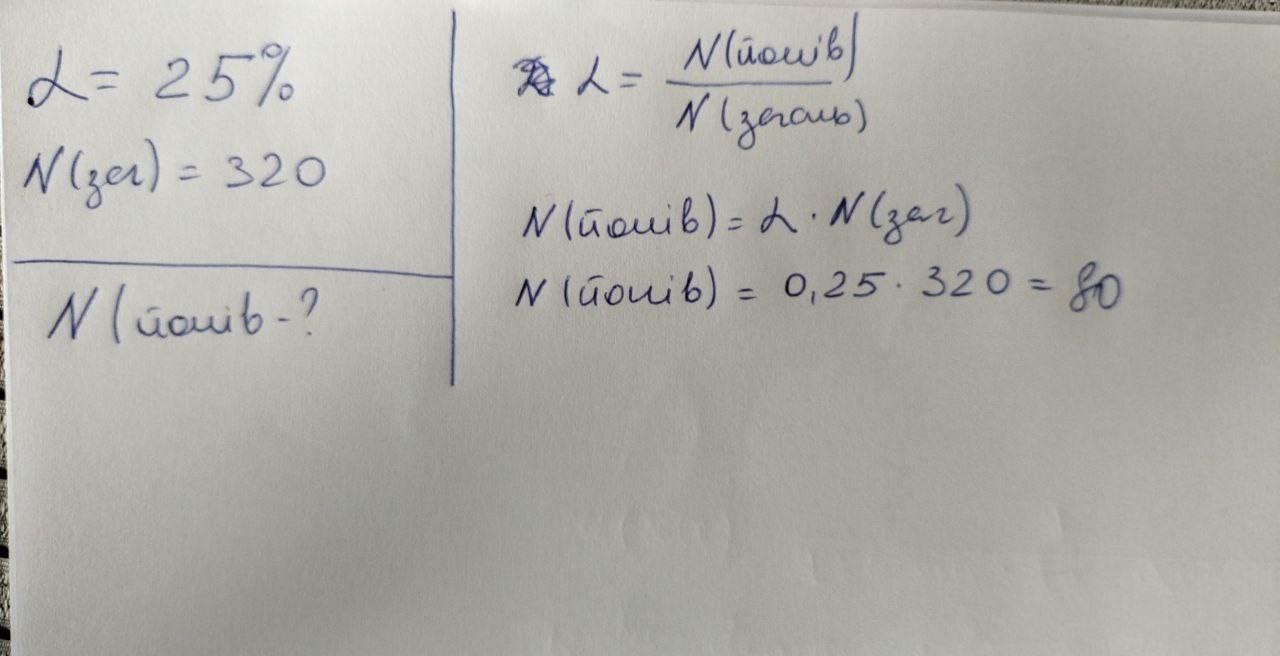 α = 25%
N(заг) = 320
N(йонів - ?
α = N(йонів) / N(загальь)
N(йонів) = α · N(заг)
N(йонів) = 0,25 · 320 = 80